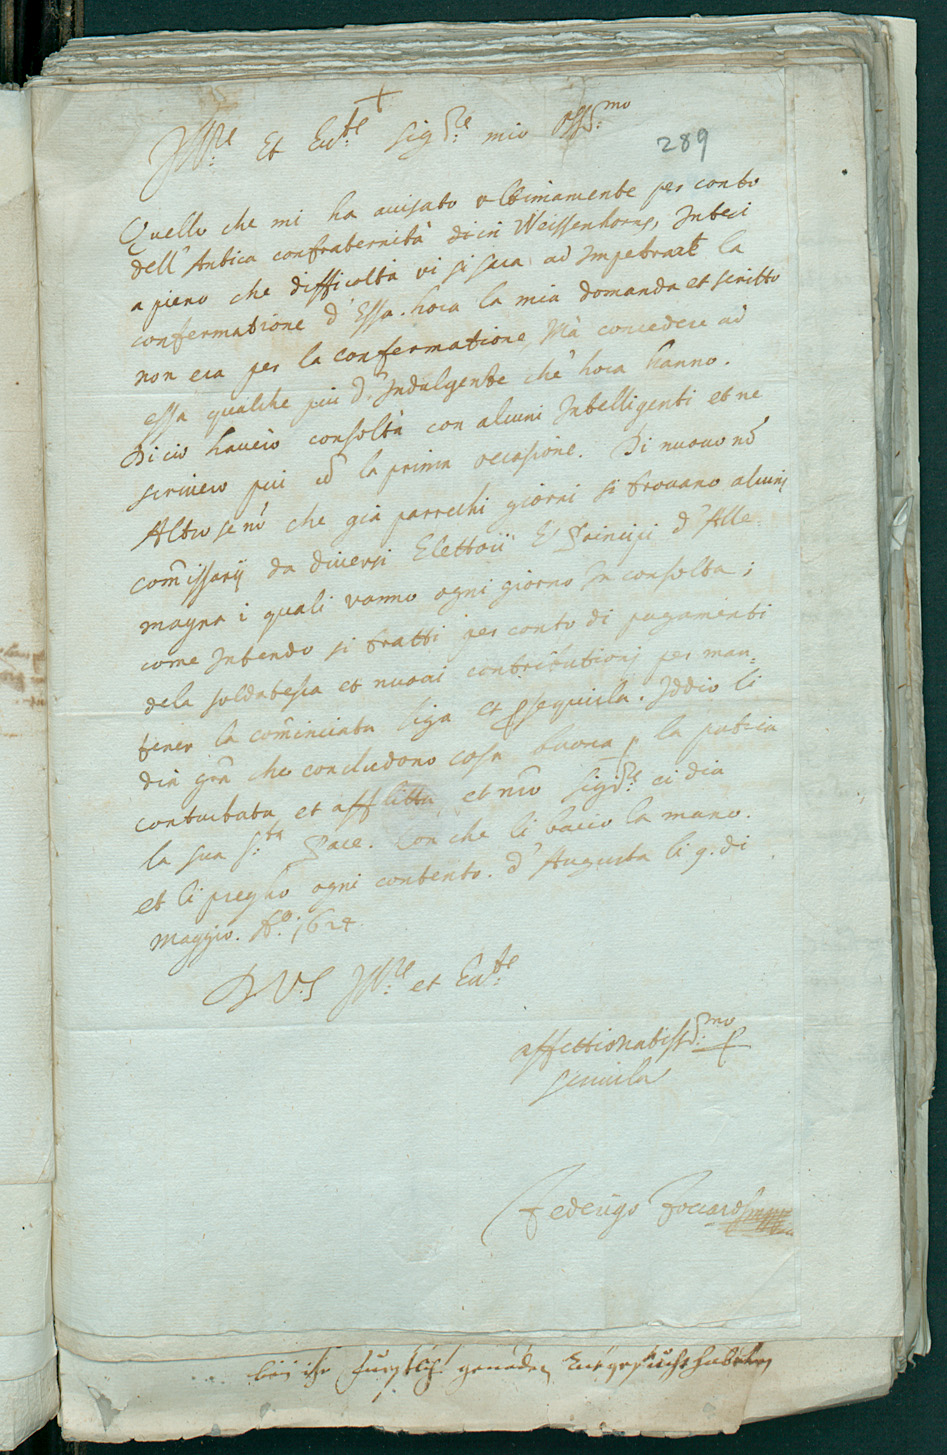 Ill:re et Ecc:te Sig:re mio oss:mo
289
Quello che mi ha avisato ultimamente per conto
dell' Antica confraternità di in Weissenhorn, Intesi
a pieno che difficoltà vi si sara ad Impetrare la
confermatione d' Essa. hora la mia domanda et scritto
non era per la confermatione, Mà concedere ad
essa qualche piu d' Indulgente che hora hanno.
Di cio havero consoltà con alcuni Intelligenti et ne
scrivero piu cõ la prima occasione. Di nuovo nõ
Altro se nõ che già parrechi giorni si trovano alcuni
com̃issarij da diversi Elettori E Principi d' Alle-
magna i quali vanno ogni giorno In consolta;
come Intendo si tratti per conto di pagamenti
dela soldatescha et nuovi contributionj per man-
tener la com̃inciata liga et p̱seguirla. Iddio li
dia grã che concludono cosa buona p̱ la patria
conturbata et afflitta et nr̃o Sig:re ci dia
la sua S:ta Pace. Con che li baccio la mano.
et li pregho ogni contento. d' Augusta li 9. di
Maggio. Aº. 1624
D V.S Ill:re et Ecc:te
affettionatiss:mo
Federigo Foccaro